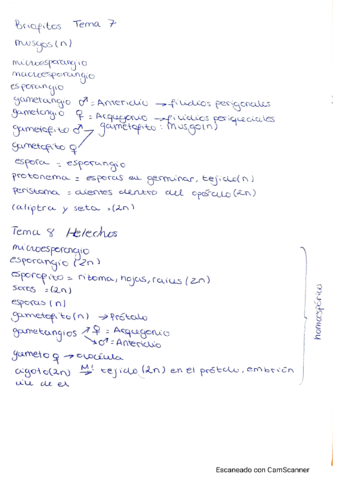 Briofitos Tema 7
musgos (n)
microesporangio
macroesporangio
esporangio
gametangio ♂ = Anteridio → filidios perigonales
gametangio ♀ = Arquegonio → filidios periqueciales
gametofito ♂ → gametofito: Musgo(n)
gametofito ♀
espora = esporangio
protonema = esporas al germinar, tejido(n)
peristoma = dientes dentro del opérculo(2n)
caliptra y seta = (2n)
Tema 8 Helechos
microesporangio
esporangio (2n)
esporofito = rizoma, hojas, raices (2n)
soros = (2n)
esporas (n)
gametofito (n) → Prótalo
gametangios ↗ ♀ = Arquegonio
↘ ♂ = Anteridio
gameto ♀ → ovocélula
cigoto(2n) M! → tejido (2n) en el prótalo, embrión
vive de el
homospórico
Escaneado con CamScanner